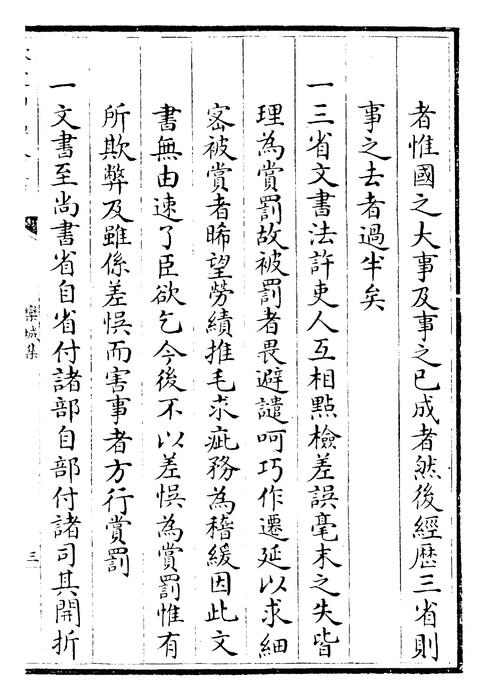 者惟國之大事及事之已成者然後經歷三省則
事之去者過半矣
一三省文書法許吏人互相點檢差誤毫末之失皆
理為賞罰故被罰者畏避譴呵巧作遷延以求細
宻被賞者晞望勞績推毛求疵務為稽緩因此文
書無由速了臣欲乞今後不以差悮為賞罰惟有
所欺弊及雖係差悮而害事者方行賞罰
一文書至尚書省自省付諸部自部付諸司其開折
欒城集
三